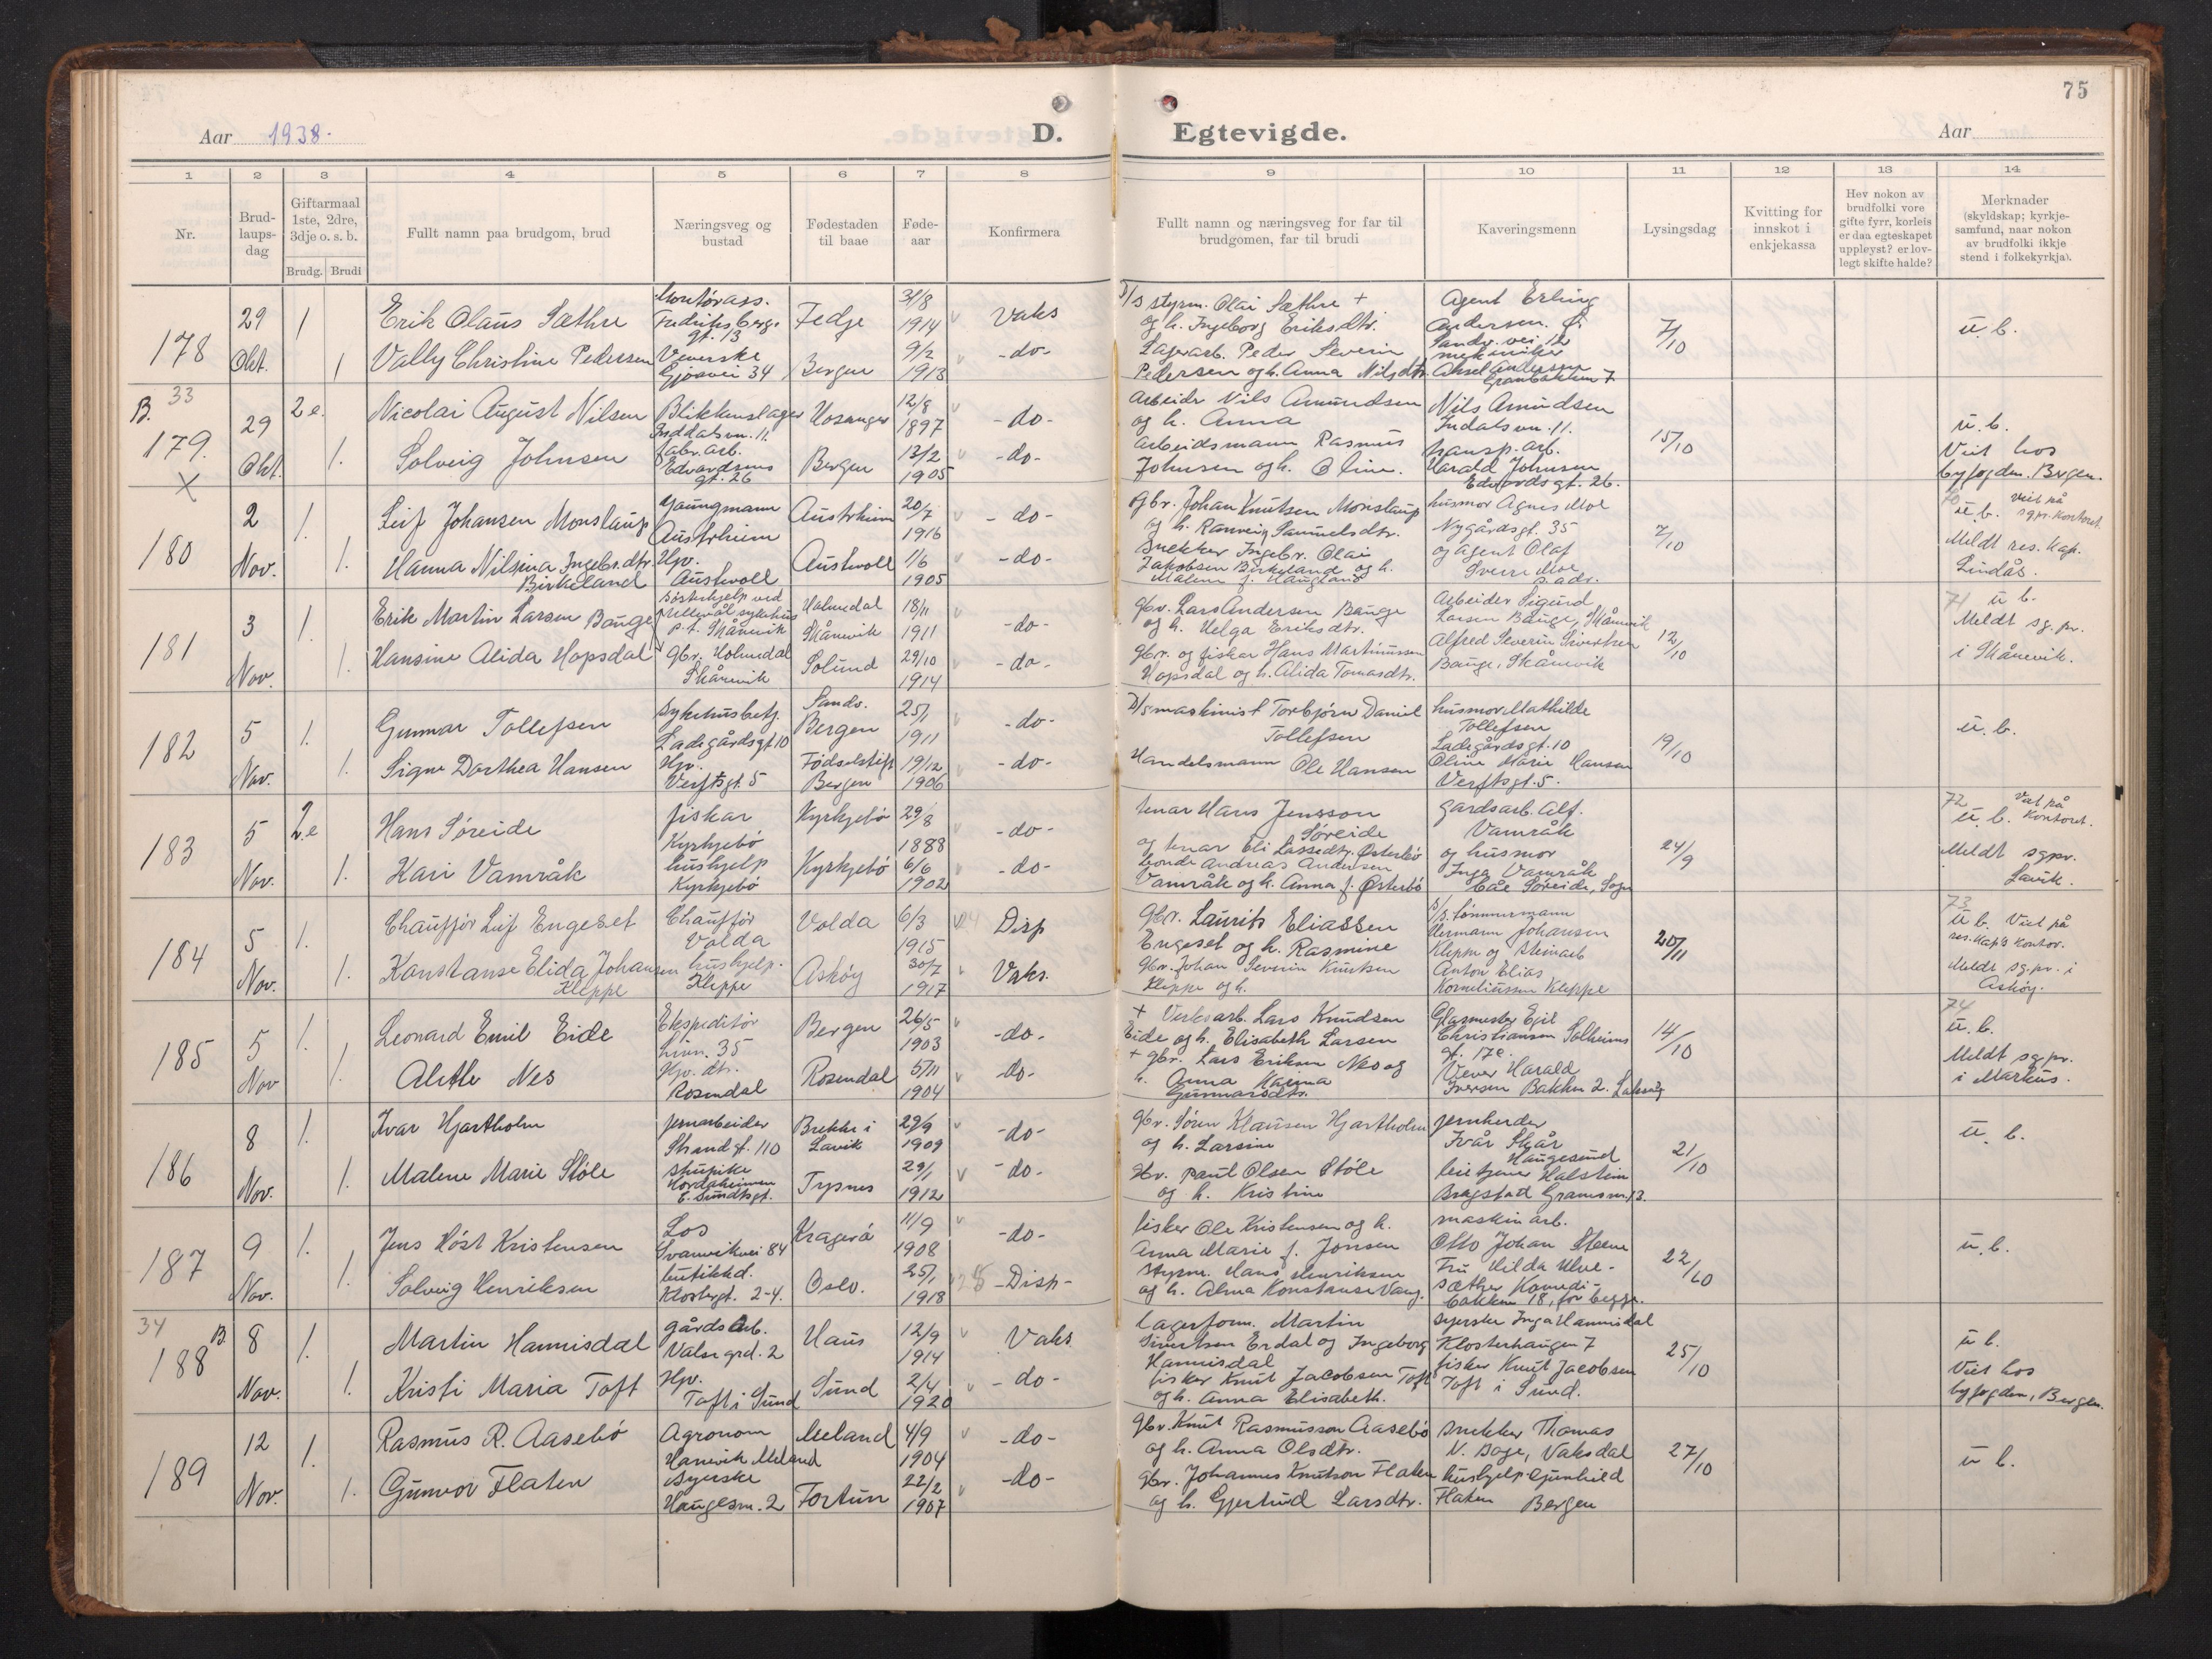 75
Aar 1938. D. Egtevigde. Aar
1 2 3 4 5 6 7 8 9 10 11 12 13 14
Nr.
Brud-
laups-
dag
Giftarmaal
1ste, 2dre,
3dje o. s. b.
Brudg. Brudi
Fullt namn paa brudgom, brud
Næringsveg og
bustad
Fødestaden
til baae
Føde-
aar
Konfirmera
Fullt namn og næringsveg for far til
brudgomen, far til brudi
Kaveringsmenn
Lysingsdag
Kvitting for
innskot i
enkjekassa
Hev nokon av
brudfolki vore
gifte fyrr, korleis
er daa egteskapet
uppløyst? er lov-
legt skifte halde?
Merknader
(skyldskap; kyrkje-
samfund, naar nokon
av brudfolki ikkje
stend i folkekyrkja).
178
29 Okt.
1
Erik Olaus Sæthre
Montørass.
Fredriksbergs
gt. 13
Fedje
31/8 1914
Vaks
D/S styrm. Olai Sæthre +
og h. Ingeborg Eriksdtr.
1
Vally Christine Pedersen
Veverske
Gjøavei 34
Bergen
9/2 1913
-do-
Lagerarb. Peder Severin
Pedersen og h. Anna Nilsdtr.
Agent Erling
Andersen. Ø.
Sandv.vei 12
mekaniker
Aksel Andersen
Granbakken 7
7/10
u. b.
33
B. 179. X
29 Okt.
2 e.
Nicolai August Nilsen
Blikkenslager
Inddalsvn. 11.
Hosanger
12/8 1897
-do-
Arbeider Nils Amundsen
og h. Anna
1.
Solveig Johnsen
fabr. arb.
Edvardsens
gt. 26
Bergen
13/2 1905
-do-
arbeidsmann Rasmus
Johnsen og h. Oline.
Nils Amundsen
Indalsvn. 11.
transp. arb.
Harald Johnsen
Edvardsgt. 26.
15/10
u. b.
Viet hos
byfogden. Bergen.
180
2 Nov.
1.
Leif Johansen Monslaup
gaungmann
Austrheim
Austrheim
20/7 1916
-do-
gbr. Johan Knutsen Monslaup
og h. Ranveig Samuelsdtr.
1.
Hanna Nilsina Ingebr.dtr.
Birkeland
Hpv.
Austevoll
Austevoll
1/6 1905
-do-
Snekker Ingebr. Olai
Jakobsen Birkeland og h.
Malene f. Haugland
husmor Agnes Moe
Nygårdsgt. 35
og agent Olaf
Sverre Moe
s. adr.
7/10
70 Viet på
u. b. sgpr. kontoret.
Meldt res. kap.
Lindås.
181
3 Nov.
1.
Erik Martin Larsen Bauge
Søsterhjelp ved
Ullevål sykehus
p.t. Skånevik
Holmedal
Skånevik
18/11 1911
-do-
gbr. Lars Andersen Bauge
og h. Helga Eriksdtr.
1.
Hansine Alida Hopsdal
gbr. Holmedal
Skånevik
Solund
29/10 1914
-do-
gbr. og fiskar Hans Martinussen
Hopsdal og h. Alida Tomasdtr.
Arbeider Sigurd
Larsen Bauge, Skånevik
Alfred Severin Sivertsen
Bauge, Skånevik
12/10
71 u b.
Meldt sg. pr.
i Skånevik.
182
5 Nov.
1.
Gunnar Tollefsen
Sykehusbetj.
Ladegårdsgt 10
Sands.
Bergen
25/1 1911
-do-
D/S maskinist Torbjørn Daniel
Tollefsen
1.
Signe Dorthea Hansen
Hpv.
Verftsgt. 5
Fødselstift.
Bergen
19/12 1906
-do-
Handelsmann Ole Hansen
husmor Mathilde
Tollefsen
Ladegårdsgt. 10
Oline Marie Hansen
Verftsgt. 5.
19/10
u. b.
183
5 Nov.
2.e
Hans Søreide
fiskar
Kyrkjebø
Kyrkjebø
29/8 1888
-do-
tenar Hans Jensson
Søreide
og tenar Eli Lassedtr. Østerbø
1.
Kari Vamråk
hushjelp
Kyrkjebø
Kyrkjebø
6/6 1902
-do-
bonde Andreas Andersen
Vamråk og h. Anna f. Østerbø
gardsarb. Alf.
Vamråk
og husmor
Inga Vamråk
båe Søreide, Sogn
24/9
72 Viet på
u. b. Kontoret.
Meldt sgpr.
Lavik.
184
5 Nov.
1.
Chauffør Leif Engeset
Chauffør
Volda
Volda
6/3 1915
Disp
gbr. Laurits Eliassen
Engeset og h. Rasmine
1.
Konstanse Elida Johansen
Kleppe
hushjelp.
Kleppe
Askøy
30/7 1917
Vaks.
gbr. Johan Severin Knutsen
Kleppe og h.
S/S. tømmermann
Hermann Johansen
Kleppe og steinarb
Anton Elias
Korneliussen Kleppe
20/11
73
u b. Viet på
res. kap's kontor.
Meldt sg.pr. i
Askøy.
185
5 Nov
1.
Leonard Emil Eide
Ekspeditør
35
Bergen
26/5 1903
-do-
+ Verksarb. Lars Knudsen
Eide og h. Elisabeth Larsen
1.
Alethe Nes
Hpv. dtr.
Rosendal
Rosendal
5/11 1904
-do-
+ gbr. Lars Eriksen Nes og
h. Anna Karina
Gunnarsdtr.
Glasmester Egil
Christiansen Solheims
gt. 17c.
Vever Harald
Iversen Bakken 2. Laksevåg
14/10
74
u. b.
Meldt sg.pr.
i Markus.
186
8 Nov.
1.
Ivar Hjartholm
jernarbeider
Strandgt. 110
Brekke i
Lavik
29/9 1909
-do-
gbr. Søren Klausen Hjartholm
og h. Larsine
1.
Malene Marie Støle
stupike
Hordaheimen
E. Sundtsgt.
Tysnes
29/1 1912
-do-
gbr. Paul Olsen Støle
og h. Kristine
jernherder
Ivår Skår
Haugesund
Halstein
Bragstad Gramsm. 13.
21/10
u. b.
187
9 Nov.
1.
Jens Høst Kristensen
Los
Svanevikvei 84
Kragerø
11/9 1908
-do-
fisker Ole Kristensen og h.
Anna Marie f. Jonsen
1.
Solveig Henriksen
butikkd.
Klostergt. 2-4.
Oslo.
25/1 1918
-Disp-
styrm. Hans Henriksen
og h. Alma Konstanse Vang.
maskinarb.
Otto Johan Steene
Fru Hilda Ulve-
sæther Komedi-
bakken 18, for begge.
22/10
u. b.
34
188 B
8 Nov.
1.
Martin Hannisdal
gårdsarb.
Valsegrd. 2
Haus
12/9 1914
Vaks
lagerform. Martin
Sivertsen Erdal og Ingeborg
Hannisdal
1.
Kristi Maria Toft
Hpv.
Toft i Sund
Sund
2/4 1920
-do-
fisker Knut Jacobsen Toft
og h. Anna Elisabeth.
Syerske Inga Hannisdal
Klosterhaugen 7
fisker Knut Jacobsen
Toft i Sund.
25/10
u b.
Viet hos
byfogden, Bergen.
189
12 Nov.
1.
Rasmus R. Aasebø
Agronom
Hanevik Meland
Meland
4/9 1904
-do-
gbr. Knut Rasmussen Aasebø
og h. Anna Olsdtr.
1.
Gunvor Flaten
Syerske
Haugesm. 2
Fortun
22/2 1907
-do-
gbr. Johannes Knutson Flaten
og h. Gjertrud Larsdtr.
snekker Thomas
N. Boge, Vaksdal
hushjelp Gunhild
Flaten Bergen
27/10
u b.